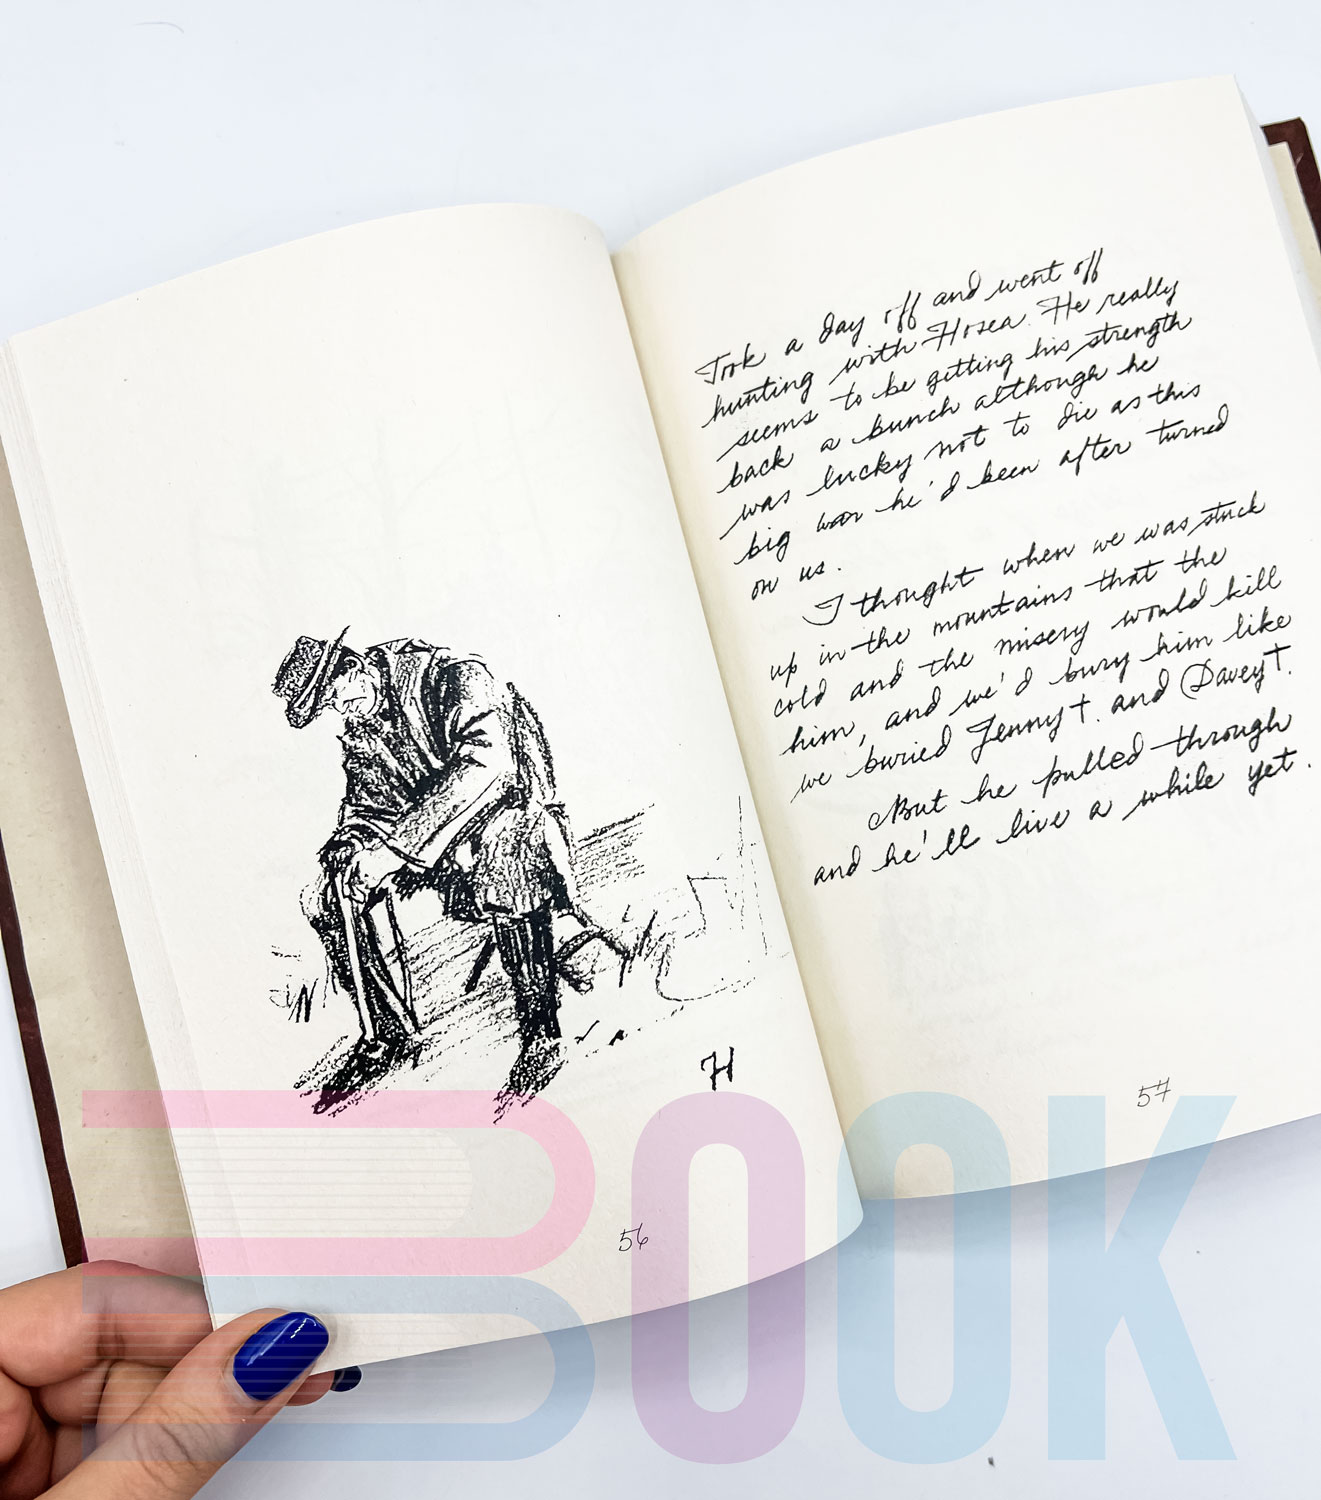 H
56
Took a day off and went off
hunting with Hosea. He really
seems to be getting his strength
back a bunch although he
was lucky not to die as this
big war he'd been after turned
on us.
I thought when we was stuck
up in the mountains that the
cold and the misery would kill
him, and we'd bury him like
we buried Jenny †. and Davey †.
But he pulled through
and he'll live a while yet.
57
BOOK